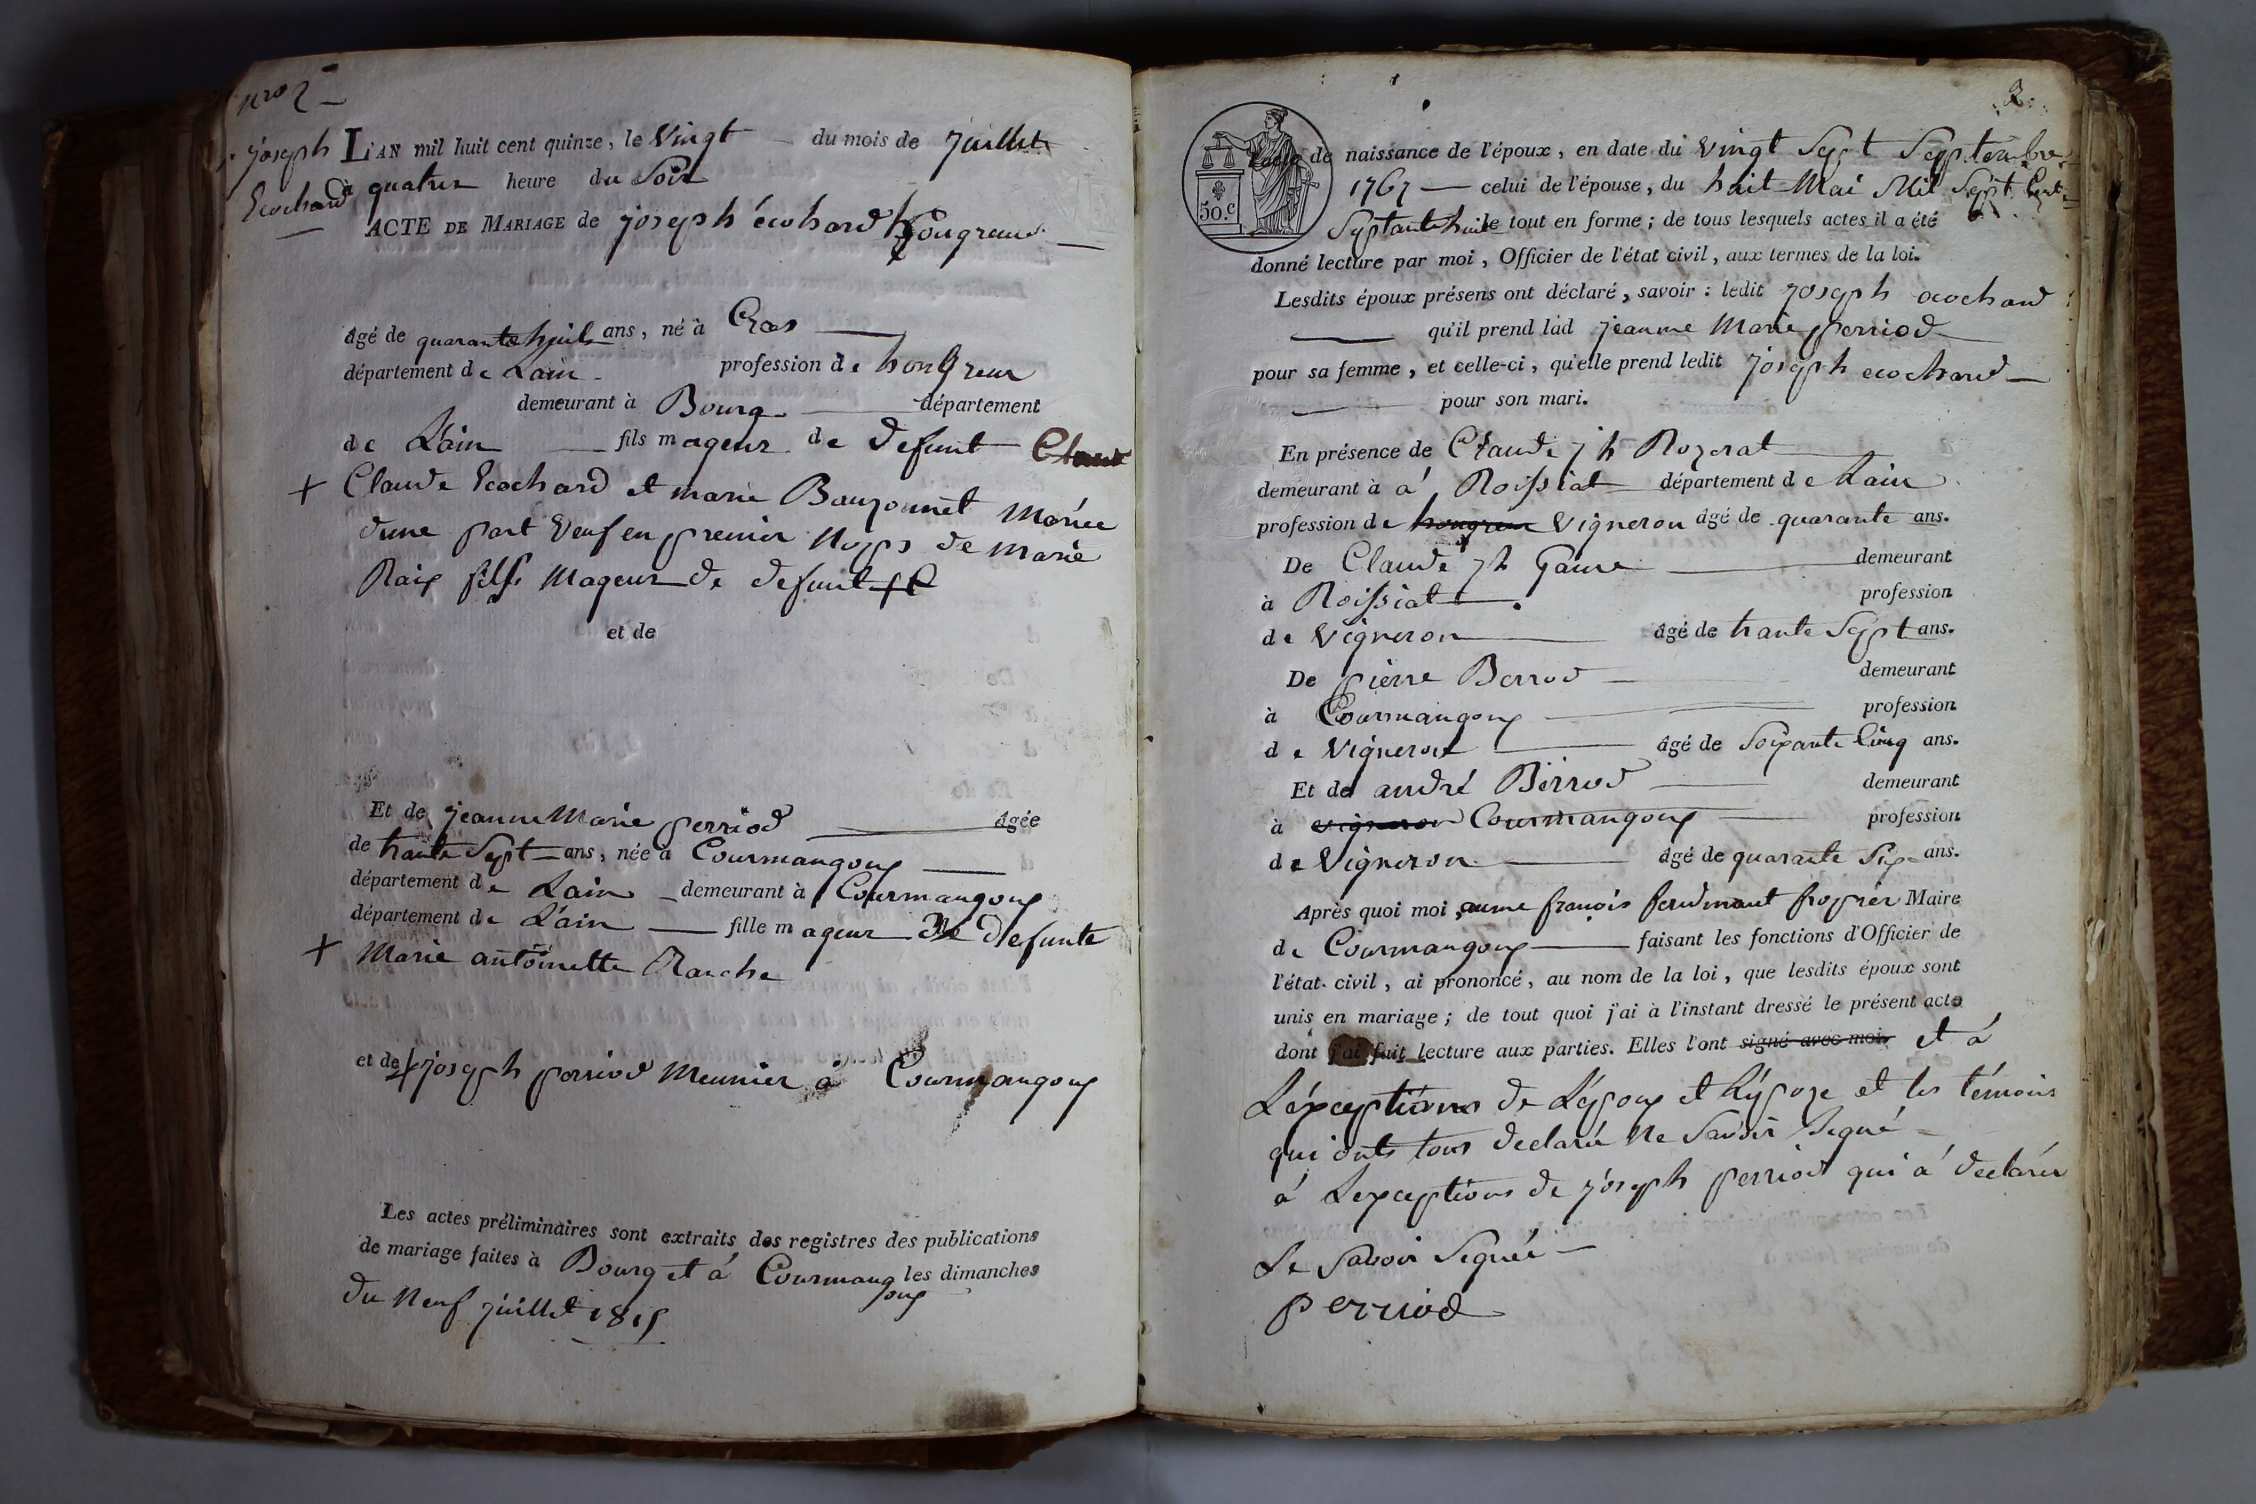 nro 2
joseph
Ecochard
L'AN mil huit cent quinze, le Vingt du mois de juillet
à quatre heure du Soir
ACTE DE MARIAGE de joseph écohard hongreur
âgé de quarante huit ans, né à Cras
département de Lain profession de hongreur
demeurant à Bourg département
de L'ain fils mageur de defunt Claude
+ Claude Ecochard et marie Bauzonnet Mariée
dune part Veuf en premier Nopss de marie
Raix fils Mageur de defunt
et de
Et de jeanne Marie perriod âgée
de trante Sept ans, née à Courmangoux
département de Lain demeurant à Courmangoux
département de L'ain fille mageur De defunte
+ Marie antoinette Ranche
et de joseph perriod Meunier à Courmangoux
Les actes préliminaires sont extraits des registres des publications
de mariage faites à Bourg et à Courmangoux les dimanches
du Neuf juillet 1815
2
50.c
l'acte de naissance de l'époux, en date du vingt Sept Septembre
1767 celui de l'épouse, du huit Mai Mil Sept Cent
Septante huit le tout en forme; de tous lesquels actes il a été
donné lecture par moi, Officier de l'état civil, aux termes de la loi.
Lesdits époux présens ont déclaré, savoir: ledit joseph ecochard
qu'il prend lad jeanne Marie perriod
pour sa femme, et celle-ci, qu'elle prend ledit joseph ecochard
pour son mari.
En présence de Claude jh Rozerat
demeurant à a Roissiat département de Lain
profession de hongreur Vigneron âgé de quarante ans.
De Claude jh Gaure demeurant
à Roissiat profession
de Vigneron âgé de trante Sept ans.
De pierre Berrod demeurant
à Courmangoux profession
de Vigneron âgé de Soixante Cinq ans.
Et de andré Berrod demeurant
à vigneron Courmangoux profession
de Vigneron âgé de quarante Six ans.
Après quoi moi, aimé françois ferdinant Maire
de Courmangoux faisant les fonctions d'Officier de
l'état civil, ai prononcé, au nom de la loi, que lesdits époux sont
unis en mariage; de tout quoi j'ai à l'instant dressé le présent acte
dont j'ai fait lecture aux parties. Elles l'ont signé avec moi, et à
L'éxceptions de L'époux et L'époze et les témoins
qui onts tous declaré Ne Savoir Signé
à Lexceptions de joseph perriod qui à declarée
Le Savoir Signée
perriod